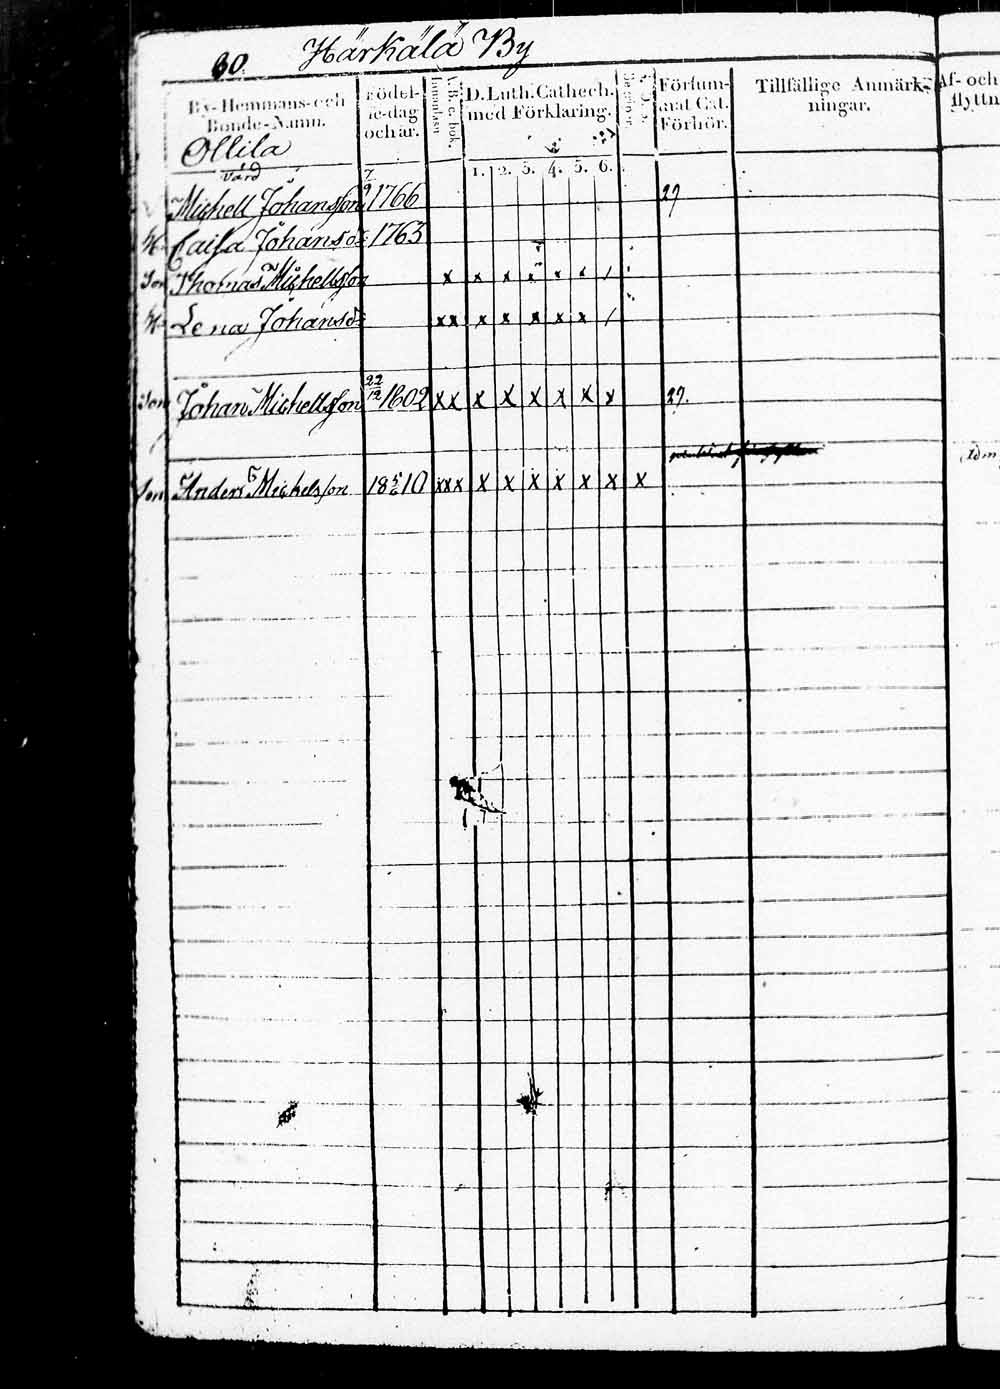 60. Härkälä By
By- Hemmans- och Bonde-Namn. Födel- se-dag och år. Innanläsn. A. B. c. bok. D. Luth. Cathech. med Förklaring. Försum- mat Cat. Förhör. Tillfällige Anmärk- ningar. Af- och flyttn
1. 2. 3. 4. 5. 6.
Ollila
Värd
Michell Johansson 7/9 1766 29
H. Caisa Johansdr 1763
Son Thomas Michellsson x x x x x x / 
H. Lena Johansdr xx x x x x x /
Son Johan Michellsson 22/12 1802 xx x x x x x x 29.
Son Anders Mickelsson 18 5/6 10 xxx x x x x x x x